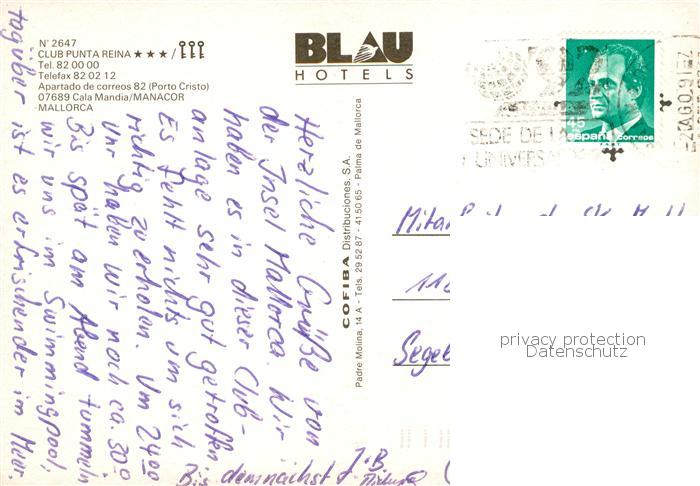 Nº 2647
CLUB PUNTA REINA ★★★/
Tel. 82 00 00
Telefax 82 02 12
Apartado de correos 82 (Porto Cristo)
07689 Cala Mandia/MANACOR
MALLORCA
BLAU
HOTELS
45
españa correos
SEDE DE LA
UNIVERSA
2 AGO 91
COFIBA Distribuciones, S.A.
Padre Molina, 14 A - Tels. 29 52 87 - 41 50 65 - Palma de Mallorca
Herzliche Grüße von
der Insel Mallorca. Wir
haben es in dieser Club-
anlage sehr gut getroffen.
Es fehlt nichts um sich
richtig zu erholen. Um 24 00
Uhr haben wir noch ca. 30°
Bis spät am Abend tummeln
wir uns im Swimmingpool,
tagüber ist es erfrischender im Meer.
Bis demnächst J+B
Segeb
privacy protection
Datenschutz